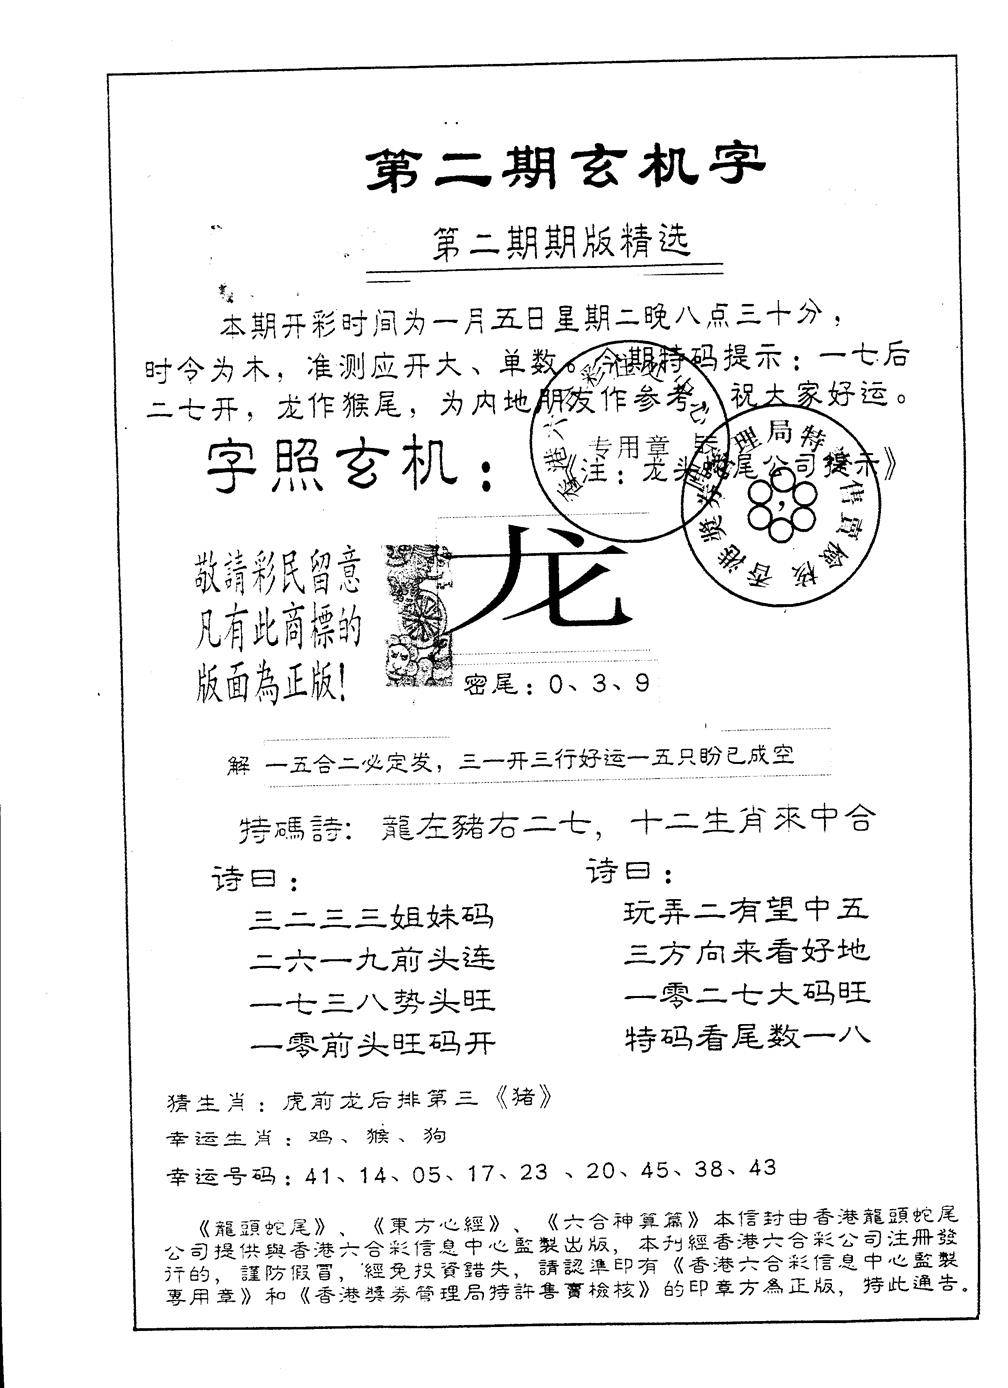 第二期玄机字
第二期期版精选
本期开彩时间为一月五日星期二晚八点三十分，
时令为木，准测应开大、单数。今期特码提示：一七后
二七开，龙作猴尾，为内地朋友作参考 祝大家好运。
字照玄机：
注：龙头蛇尾公司提示》
专用章
香港六合彩信息中心
香港獎券管理局特許售賣檢核
敬請彩民留意
凡有此商標的
版面為正版！
龙
密尾：0、3、9
解 一五合二必定发，三一开三行好运一五只盼已成空
特碼詩：龍左豬右二七，十二生肖來中合
诗曰：
三二三三姐妹码
二六一九前头连
一七三八势头旺
一零前头旺码开
诗曰：
玩弄二有望中五
三方向来看好地
一零二七大码旺
特码看尾数一八
猜生肖：虎前龙后排第三《猪》
幸运生肖：鸡、猴、狗
幸运号码：41、14、05、17、23 、20、45、38、43
《龍頭蛇尾》、《東方心經》、《六合神算篇》本信封由香港龍頭蛇尾
公司提供與香港六合彩信息中心監製出版，本刊經香港六合彩公司注冊發
行的，謹防假冒，經免投資錯失，請認準印有《香港六合彩信息中心監製
專用章》和《香港獎券管理局特許售賣檢核》的印章方為正版，特此通告。